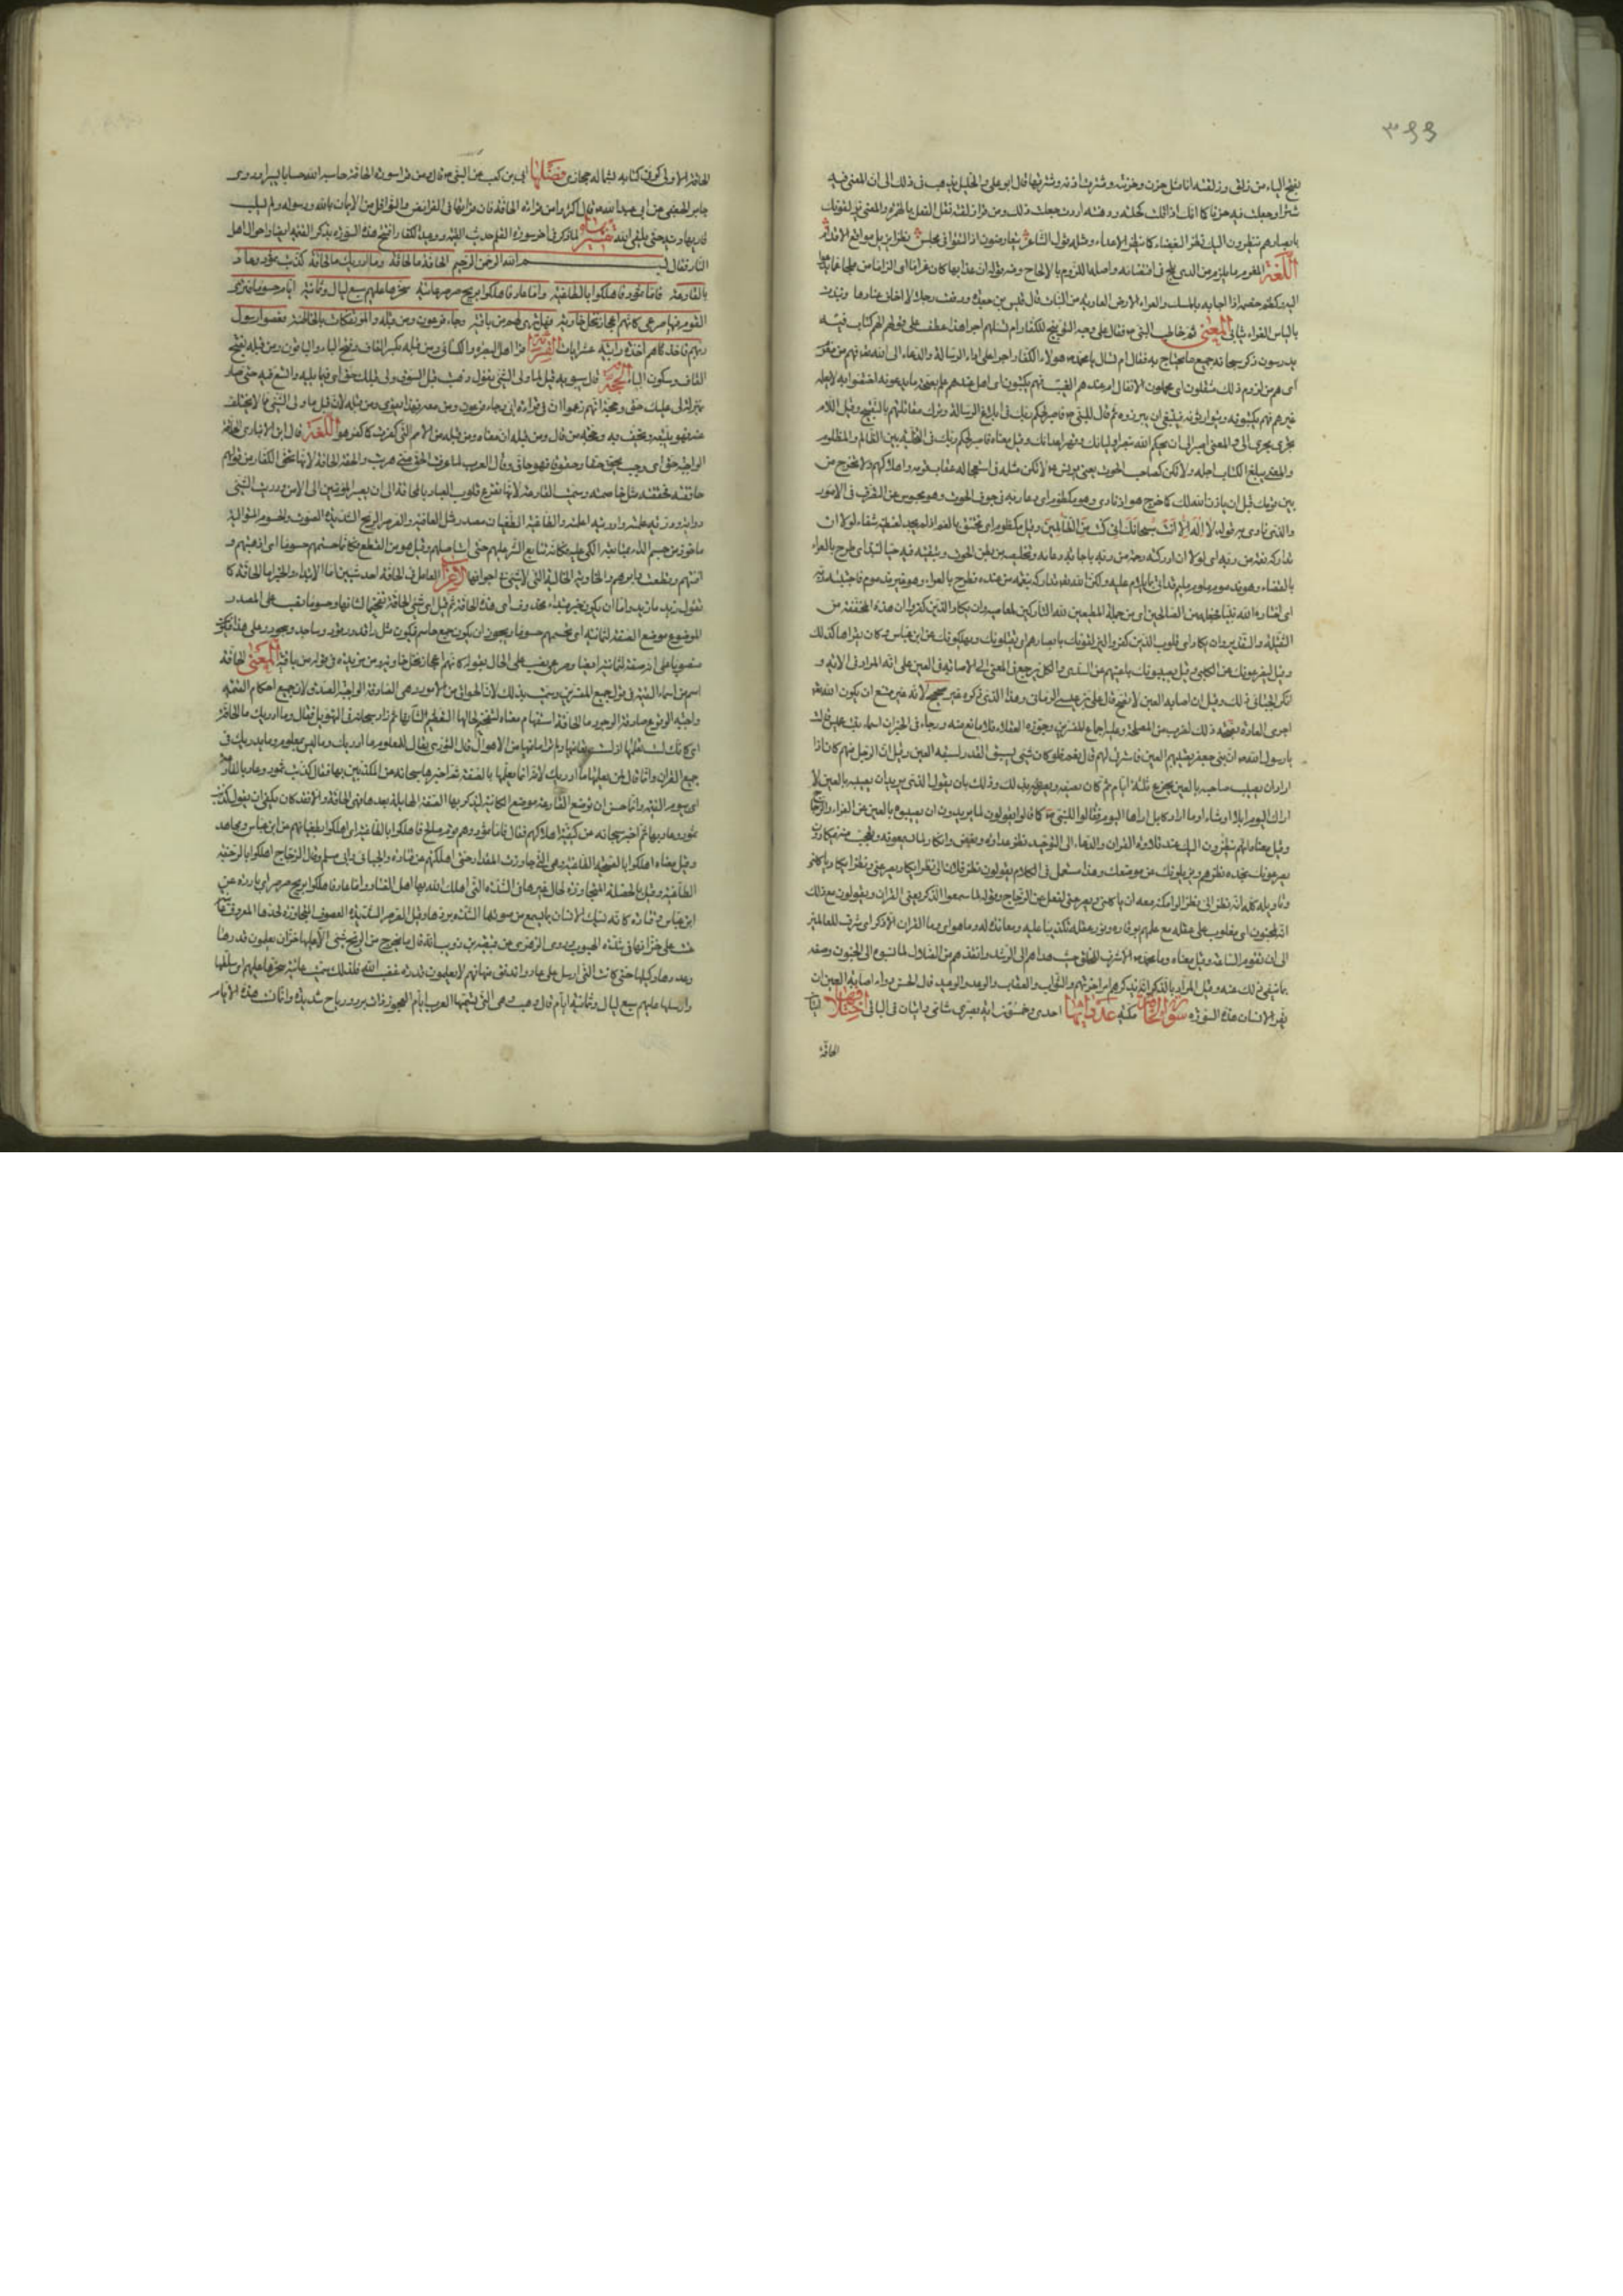 ٣٩٩
بفتح الياء من زلق وزلقته انا مثل حزن وحزنته وشترت اذنه وشترتها قال ابو علي والخليل يذهب في ذلك الى ان المعنى فيه
شترا وجعلت فيه حزنا كما انك اذا قلت كحلته ودهنته اردت جعلت ذلك ومن قرأ ازلقته نقل الفعل بالهمزة والمعنى ليزلقونك
بابصارهم ينظرون اليك نظر البغضاء كما ينظر الاعداء ومثله قول الشاعر يتقارضون اذا التقوا في مجلس نظرا يزيل مواقع الاقدام
اللغة المغرم ما يلزم من الدين الذي يلج في اقتضائه واصله اللزوم بالالحاح ومنه قوله ان عذابها كان غراما اي لازما
اليه وكظم خصمه اذا اجابه بالمسكت والعراء الارض العارية من النبات قال قيس بن جعدة ورفعت رجلا لا اخاف عثارها ونبذت
بالبلد العراء ثيابي المعنى ثم خاطب النبي ص فقال على وجه التوبيخ للكفار ام تسئلهم اجرا هذا عطف على قوله ام لهم كتاب فيه
يدرسون ذكر سبحانه جميع ما يحتاج به فقال ام تسال يا محمد هؤلاء الكفار اجرا على اداء الرسالة والدعاء الى الله فهم من مغرم
اي هم من لزوم ذلك مثقلون اي محملون الاثقال ام عندهم الغيب فهم يكتبون اي هل عندهم علم بصحة ما يدعونه اختصوا به لا يعلمه
غيرهم فهم يكتبونه ويتوارثونه فينبغي ان يبرزوه ثم قال للنبي ص فاصبر لحكم ربك في ابلاغ الرسالة وترك مقابلتهم بالقبيح وقيل اللام
تجري مجرى الى والمعنى اصبر الى ان يحكم الله بنصر اوليائك وقهر اعدائك وقيل معناه فاصبر لحكم ربك في التخلية بين الظالم والمظلوم
والمعنى حتى يبلغ الكتاب اجله ولا تكن كصاحب الحوت يعني يونس اي لا تكن مثله في استعجاله عقاب قومه واهلاكهم ولا تخرج من
بين قومك قبل ان ياذن الله لك كما خرج هو اذ نادى وهو مكظوم اي دعا ربه في جوف الحوت وهو محبوس عن التصرف في الامور
والذي نادى به قوله لا اله الا انت سبحانك اني كنت من الظالمين وقيل مكظوم اي مختنق بالغم اذ لم يجد لغيظه شفاء لولا ان
تداركه نعمة من ربه اي لولا ان ادركته رحمة من ربه باجابة دعائه وتخليصه من بطن الحوت وتبقيته فيه حيا لنبذ اي طرح بالعراء
بالفضاء وهو مذموم ملوم مليم قد اتى بما يلام عليه ولكن الله تعالى تداركه بنعمة من عنده فطرح بالعراء وهو غير مذموم فاجتباه ربه
اي اختاره الله نبيا فجعله من الصالحين اي من جملة المطيعين لله التاركين لمعاصيه وان يكاد الذين كفروا ان هذه المخففة من
الثقيلة والتقدير وانه يكاد اي قارب الذين كفروا ليزلقونك بابصارهم اي يقتلونك ويهلكونك عن ابن عباس وكان يقراها كذلك
وقيل ليصرعونك عن الكلبي وقيل يصيبونك باعينهم عن السدي والكل يرجع في المعنى الى الاصابة في العين على انه المراد في الاية و
انكر الجبائي ذلك وقيل ان اصابة العين لا تصح قال علي بن عيسى الرماني وهذا الذي ذكره غير صحيح لانه غير ممتنع ان يكون الله تعالى
اجرى العادة بصحة ذلك لضرب من المصلحة وعليه اجماع المفسرين وجوزه العقلاء فلا مانع منه وجاء في الخبر ان اسماء بنت عميس قالت
يا رسول الله ان بني جعفر يصيبهم العين فاسترقي لهم قال نعم فلو كان شيء يسبق القدر لسبقه العين وقيل ان الرجل منهم كان اذا
اراد ان يصيب صاحبه بالعين تجوع ثلثة ايام ثم كان يصفه فيصرعه بذلك وذلك بان يقول الذي يريد ان يصيبه بالعين لا
ارى كاليوم ابلا او شاء او ما اراد كابل اراها اليوم فقالوا للنبي ص كما كانوا يقولون لما يريدون ان يصيبوه بالعين عن الفراء والزجاج
وقيل معناه انهم ينظرون اليك عند تلاوة القران والدعاء الى التوحيد نظر عداوة وبغض وانكار لما يسمعونه وتعجب منه فيكادون
يصرعونك بحدة نظرهم ويزيلونك عن موضعك وهذا مستعمل في الكلام يقولون نظر فلان الي نظرا يكاد يصرعني ونظرا يكاد ياكلني
وتاويله كله انه نظر الي نظرا لو امكنه معه ان ياكلني ويصرعني لفعل عن الزجاج ويقولون لما سمعوا الذكر يعني القران ويقولون مع ذلك
انه لمجنون اي مغلوب على عقله مع علمهم بوقاره ووفور عقله تكذيبا عليه ومعاندة له وما هو اي وما القران الا ذكر اي شرف للعالمين
الى ان تقوم الساعة وقيل معناه وما محمد ص الا شرف للخلق حيث هداهم الى الرشد وانقذهم من الضلالة لما نسبوه الى الجنون وصفه
بما ينفي ذلك عنه وقيل المراد بالذكر انه يذكرهم امر اخرتهم والثواب والعقاب والوعد والوعيد قال الحسن دواء اصابة العين ان
يقرأ الانسان هذه السورة سورة الحاقة مكية عدد آيها احدى وخمسون آية بصري شامي واثنان في الباقي اختلافها آيتان
الحاقة
الحاقة الاولى كوفي كتابه بشماله حجازي فضلها ابي بن كعب عن النبي ص قال من قرا سورة الحاقة حاسبه الله حسابا يسيرا وروى
جابر الجعفي عن ابي عبد الله قال اكثروا من قراءة الحاقة فان قراءتها في الفرائض والنوافل من الايمان بالله ورسوله ولم يسلب
قاريها دينه حتى يلقى الله تفسيرها لما ذكر في اخر سورة القلم حديث القيمة ووعيد الكفار افتتح هذه السورة بذكر القيمة ايضا واحوال اهل
النار فقال بسم الله الرحمن الرحيم الحاقة ما الحاقة وما ادريك ما الحاقة كذبت ثمود وعاد
بالقارعة فاما ثمود فاهلكوا بالطاغية واما عاد فاهلكوا بريح صرصر عاتية سخرها عليهم سبع ليال وثمانية ايام حسوما فترى
القوم فيها صرعى كانهم اعجاز نخل خاوية فهل ترى لهم من باقية وجاء فرعون ومن قبله والمؤتفكات بالخاطئة فعصوا رسول
ربهم فاخذهم اخذة رابية عشر ايات القراءة قرا اهل البصرة والكسائي ومن قبله بكسر القاف وفتح الباء والباقون ومن قبله بفتح
القاف وسكون الباء الحجة قال سيبويه قبل لما ولي الشيء يقول ذهب قبل السوق ولي قبلك حق اي فيما يليك واتسع فيه حتى صار
بمنزلة لي عليك حق وحجة انهم زعموا ان في قراءة ابي وجاء فرعون ومن معه
اللغة قال ابن الانباري الحاقة
الواجبة حق اي وجب يحق حقا وحقوقا فهو حاق وقال
حاققته فحققته مثل خاصمته وسميت القارعة لانها تقرع قلوب العباد بالمخافة الى ان يصير المؤمنين الى الامن ودريت الشيء
دراية ودرية علمته وادريته اعلمته والطاغية الطغيان مصدر مثل العافية والصرصر الريح الشديدة الصوت والحسوم المتوالية
ماخوذ من حسم الداء بمتابعة الكي عليه فكانه تتابع الشر عليهم حتى استاصلهم وقيل هو من القطع فكانها حسمتهم حسوما اي اذهبتهم و
افنتهم وقطعت دابرهم والخاوية الخالية التي لا شيء في اجوافها الاعراب العامل في الحاقة احد شيئين اما الابتداء والخبر ما الحاقة كما
تقول زيد ما زيد واما ان يكون خبر مبتداء محذوف اي هذه الحاقة ثم قيل اي شيء الحاقة تفخيما لشانها وحسوما نصب على المصدر
الموضوع موضع الصفة لثمانية اي تحسمهم حسوما ويجوز ان يكون جمع حاسم فيكون مثل راقد ورقود وساجد وسجود وعلى هذا فيكون
منصوبا على انه صفة لثمانية ايضا وصرعى نصب على الحال وقوله كانهم اعجاز نخل خاوية من مزيدة في قوله من باقية المعنى الحاقة
اسم من اسماء القيمة في قول جميع المفسرين وسميت بذلك لانها ذات الحواق من الامور وهي الصادقة الواجبة الصدق لان جميع احكام القيمة
واجبة الوقوع صادقة الوجود ما الحاقة استفهام معناه التفخيم لحالها والتعظيم لشانها ثم زاد سبحانه في التهويل فقال وما ادريك ما الحاقة
اي كانك لست تعلمها اذ لم تعاينها ولم تر ما فيها من الاهوال قال الثوري يقال للمعلوم ما ادريك ولما ليس بمعلوم وما يدريك في
جميع القران وانما قال لمن يعلمها ما ادريك لانه انما يعلمها بالصفة ثم اخبر سبحانه عن المكذبين بها فقال كذبت ثمود وعاد بالقارعة
اي بيوم القيمة وانما حسن ان توضع القارعة موضع الكناية لتذكر بها الصفة الهايلة بعد ما فيها الحاقة والا فقد كان يكفي ان يقول كذبت
ثمود وعاد بها ثم اخبر سبحانه عن كيفية اهلاكهم فقال فاما ثمود وهم قوم صالح فاهلكوا بالطاغية اي اهلكوا بطغيانهم عن ابن عباس ومجاهد
وقيل معناه اهلكوا بالصيحة الطاغية وهي التي جاوزت المقدار حتى اهلكتهم عن قتادة والجبائي وابي مسلم وقال الزجاج اهلكوا بالرجفة
الطاغية وقيل بالخصلة المتجاوزة لحال غيرها في الشدة التي اهلك الله بها اهل الفساد واما عاد فاهلكوا بريح صرصر اي باردة عن
ابن عباس وقتادة كانه تصطك الاسنان بما يسمع من صوتها لشدة بردها وقيل الصرصر الشديدة العصوف المتجاوزة لحدها المعروف عاتية
عتت على خزانها في شدة الهبوب روى الزهري عن قبيصة بن ذويب انه قال ما يخرج من الريح شيء الا عليها خزان يعلمون قدرها
وعددها وكيلها حتى كانت التي ارسل على عاد واندفق منها فهم لا يعلمون قدره غضب الله فلذلك سميت عاتية سخرها عليهم اي سلطها
وارسلها عليهم سبع ليال وثمانية ايام قال وهب وهي التي تسميها العرب ايام العجوز ذات برد ورياح شديدة وانما نسبت هذه الايام